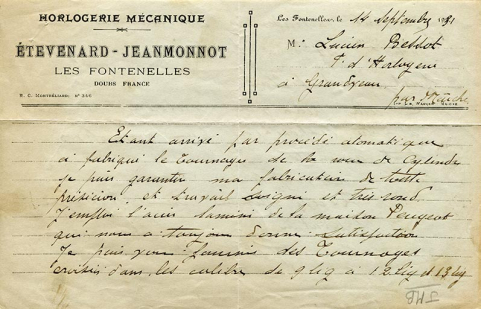 HORLOGERIE MÉCANIQUE
ÉTEVENARD-JEANMONNOT
LES FONTENELLES
DOUBS FRANCE
Les Fontenelles, le 14 Septembre 1931
M. Lucien
d'Horlogerie
à
par
Etant arrivé par procédé atomatique
à fabriqué le tournages de la roue de Cylindre
je puis garantir ma fabrication de toute
présicion, et travail soigné, et très rond,
J'emploi l'acier laminé de la maison Peugeot
qui nous a toujour donné satisfaction
Je puis vous fournir des Tournages
croisés dans les calibre de 9 lig à 12 lig et 13 lig